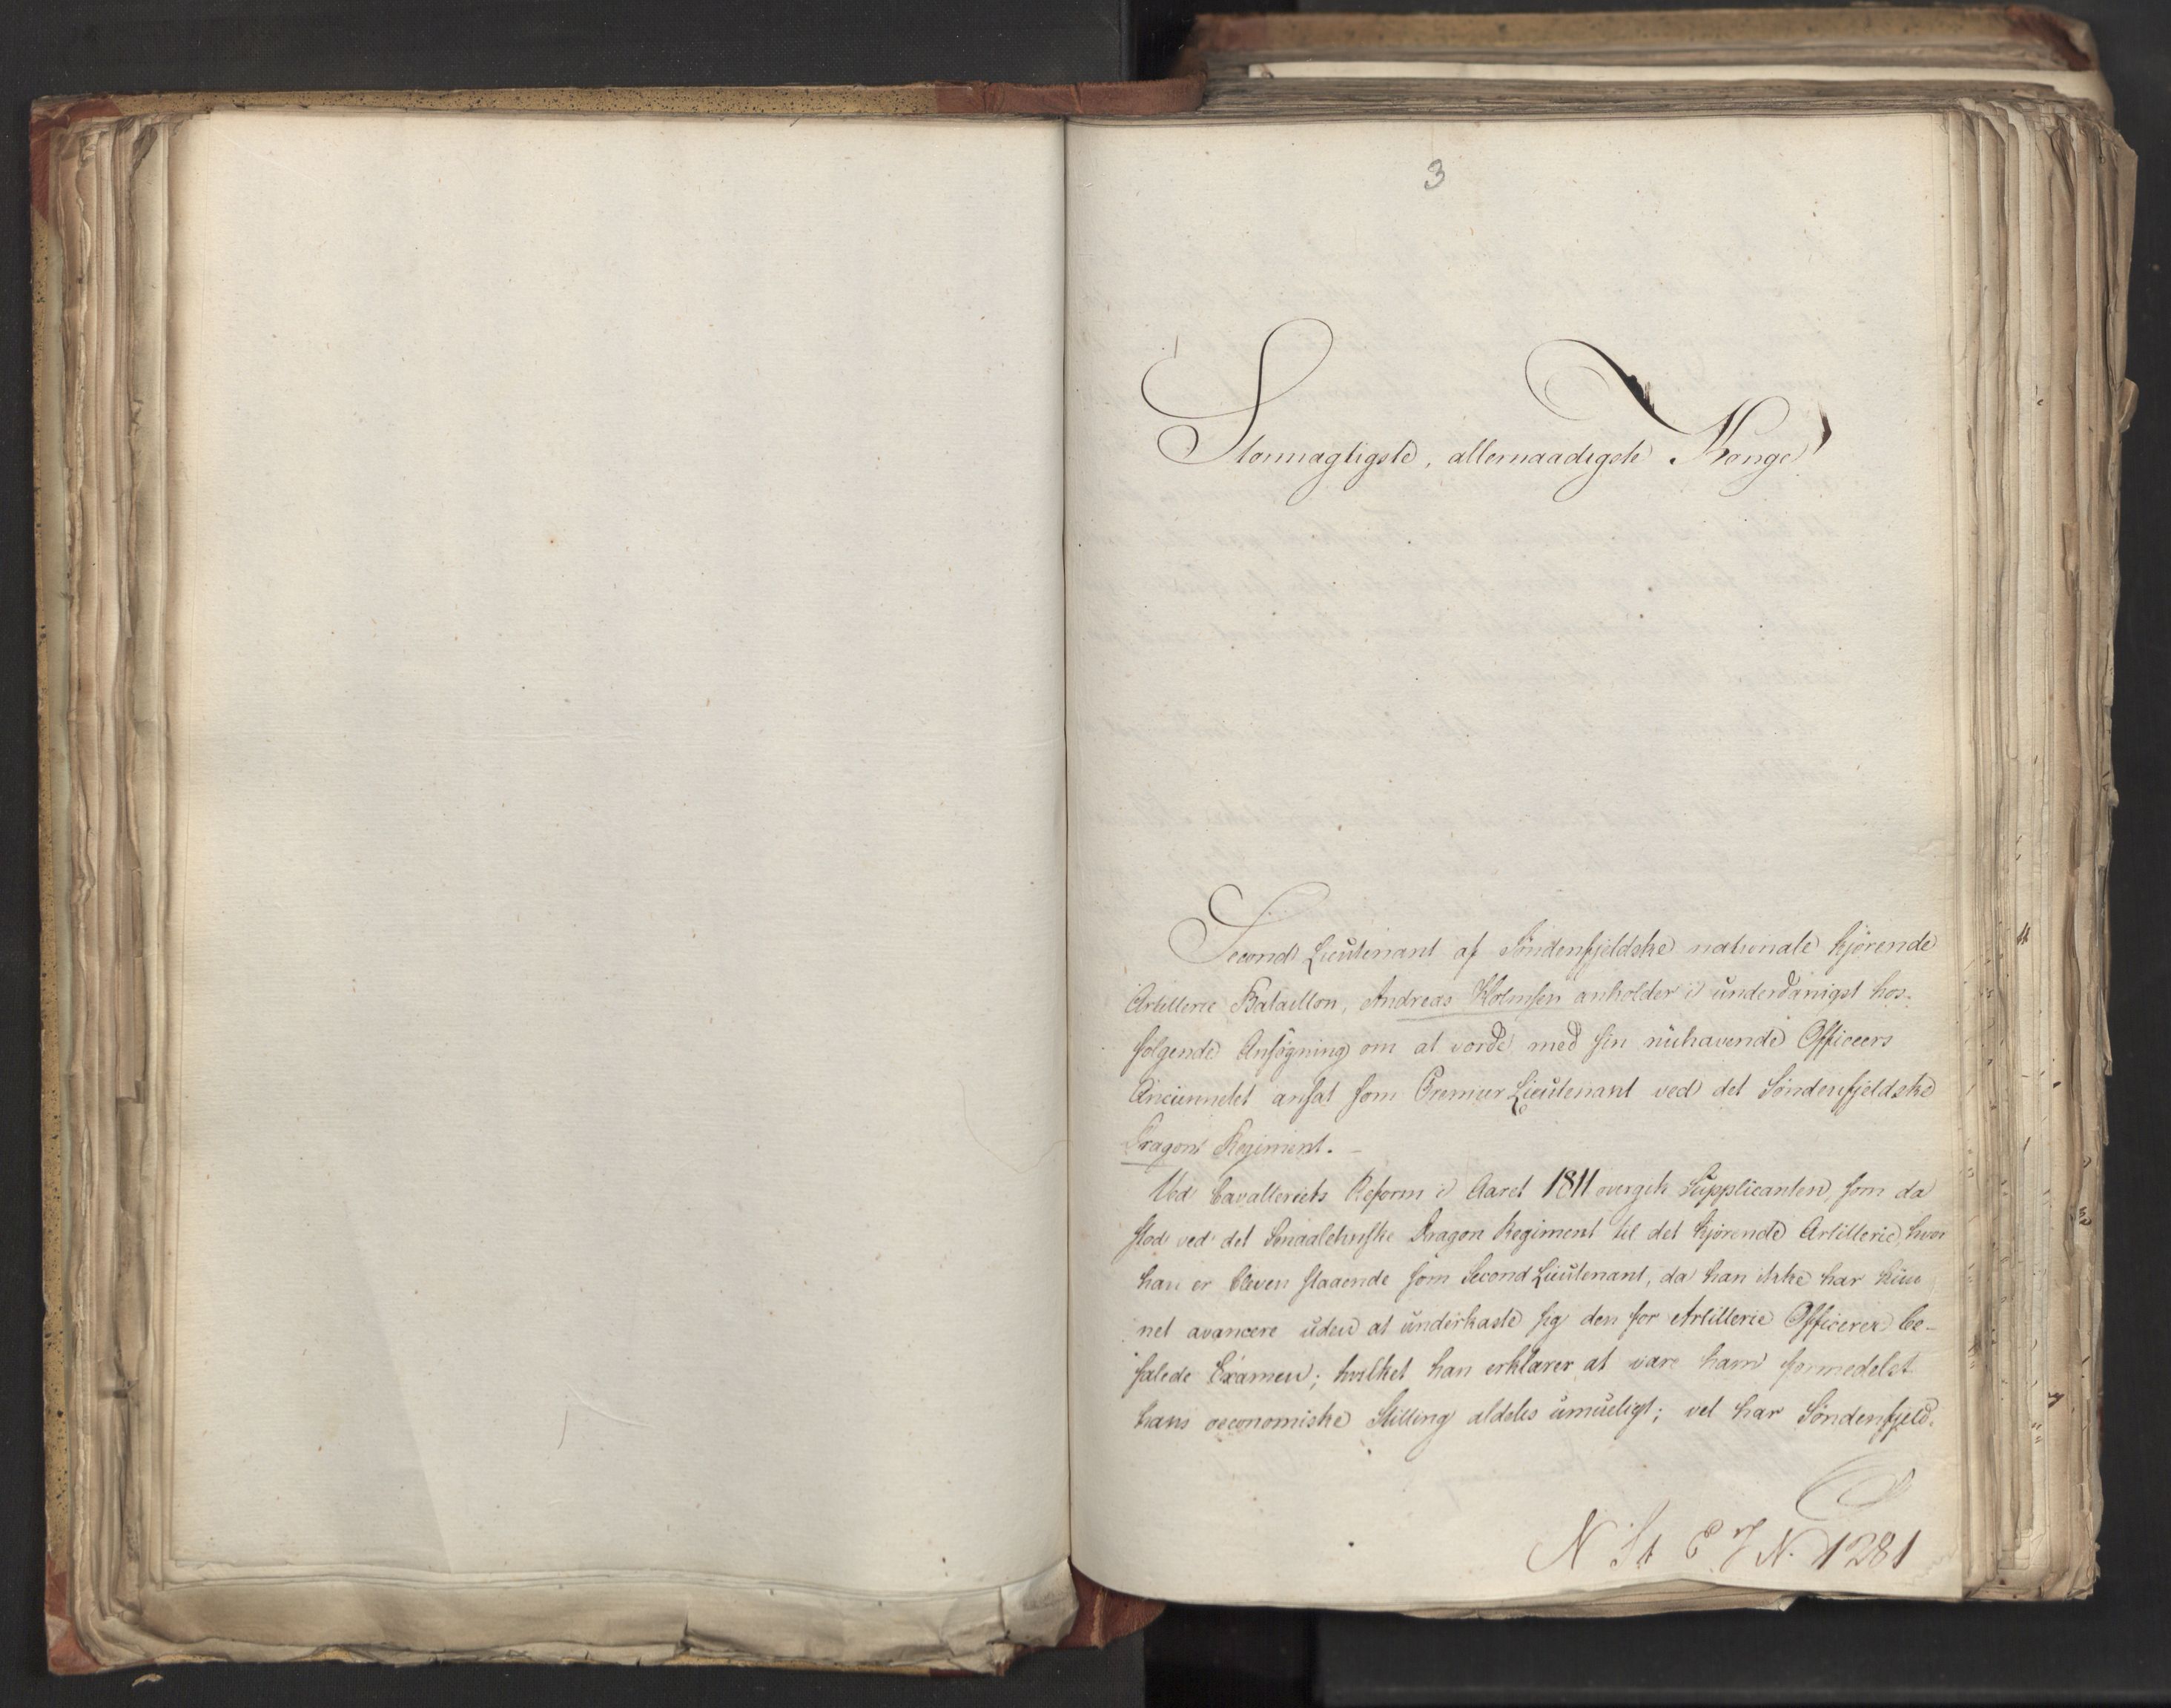 3
Stormægtigste, allernaadigste Konge!
Second Lieutenant af Søndenfjeldske nationale kjørende
Artillerie Bataillon, Andreas Holmsen anholder i underdanigst hos-
følgende Ansøgning om at vorde med sin nühavende Officeers
Anciennetet ansat som Premier Lieutenant ved det Søndenfjeldske
Dragon Regiment. —
Ved Cavalleriets Reform i Aaret 1811 overgik Supplicanten, som da
stod ved det Smaalehnske Dragon Regiment til det kjørende Artillerie, hvor
han er bleven staaende som Second Lieutenant, da han ikke har kün
net avancere uden at underkaste sig den for Artillerie Officerer be-
falede Examen; hvilket han erklærer at være ham formedelst
hans oeconomiske Stilling aldeles umueligt; vel har Søndenfjeld-
N St E J N. 1281